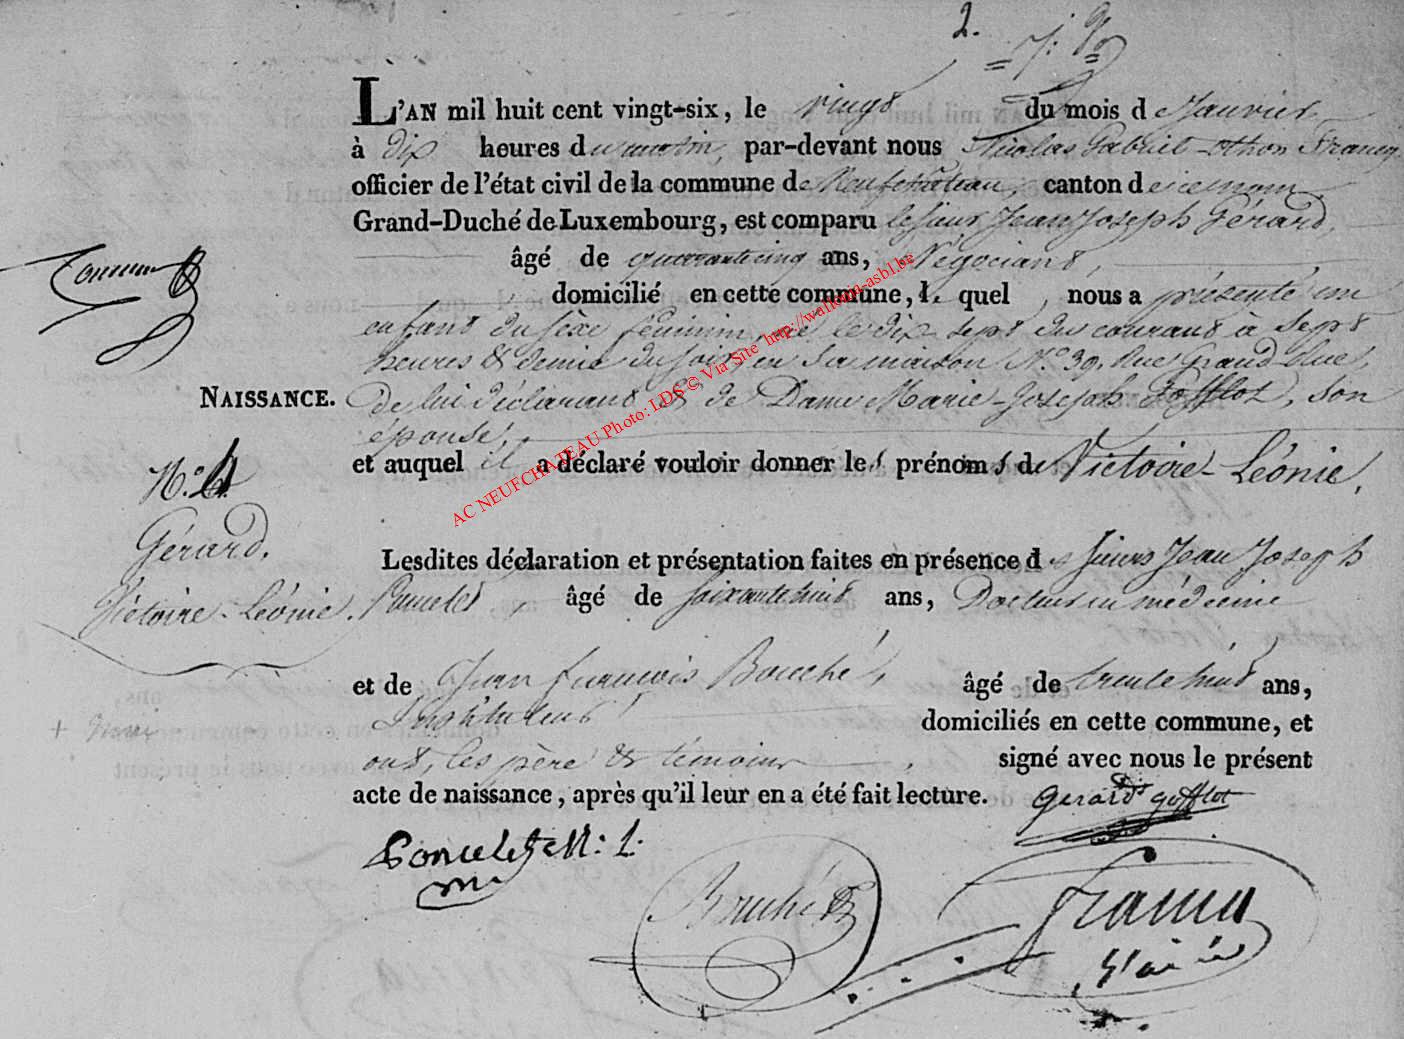 2.
L'AN mil huit cent vingt-six, le vingt du mois d e Janvier
à dix heures d u matin, par-devant nous Nicolas Gabriel Othon Francq
officier de l'état civil de la commune d e Neufchâteau, canton d e ce nom
Grand-Duché de Luxembourg, est comparu le sieur Jean Joseph Gérard,
âgé de quarante cinq ans, Négociant,
domicilié en cette commune, le quel, nous a présenté un
enfant du sèxe féminin, né le dix sept du courant à sept
heures & demie du soir, en sa maison N.o 39, Rue Grand Rue,
NAISSANCE.
de lui déclarant & de Dame Marie-Joseph Gofflot, son
épouse,
et auquel il a déclaré vouloir donner le s prénom s de Victoire-Léonie,
N.o 4.
Gérard,
Victoire-Léonie.
Lesdites déclaration et présentation faites en présence d es sieurs Jean Joseph
Poncelet, âgé de soixante huit ans, Docteur en médecine
et de Jean françois Bouché, âgé de trente huit ans,
Instituteur domiciliés en cette commune, et
ont, les père & témoins, signé avec nous le présent
acte de naissance, après qu'il leur en a été fait lecture.
Gerard Gofflot
Poncelet
Bouché
AC NEUFCHATEAU Photo: LDS © Via Site http://wallonia-asbl.be